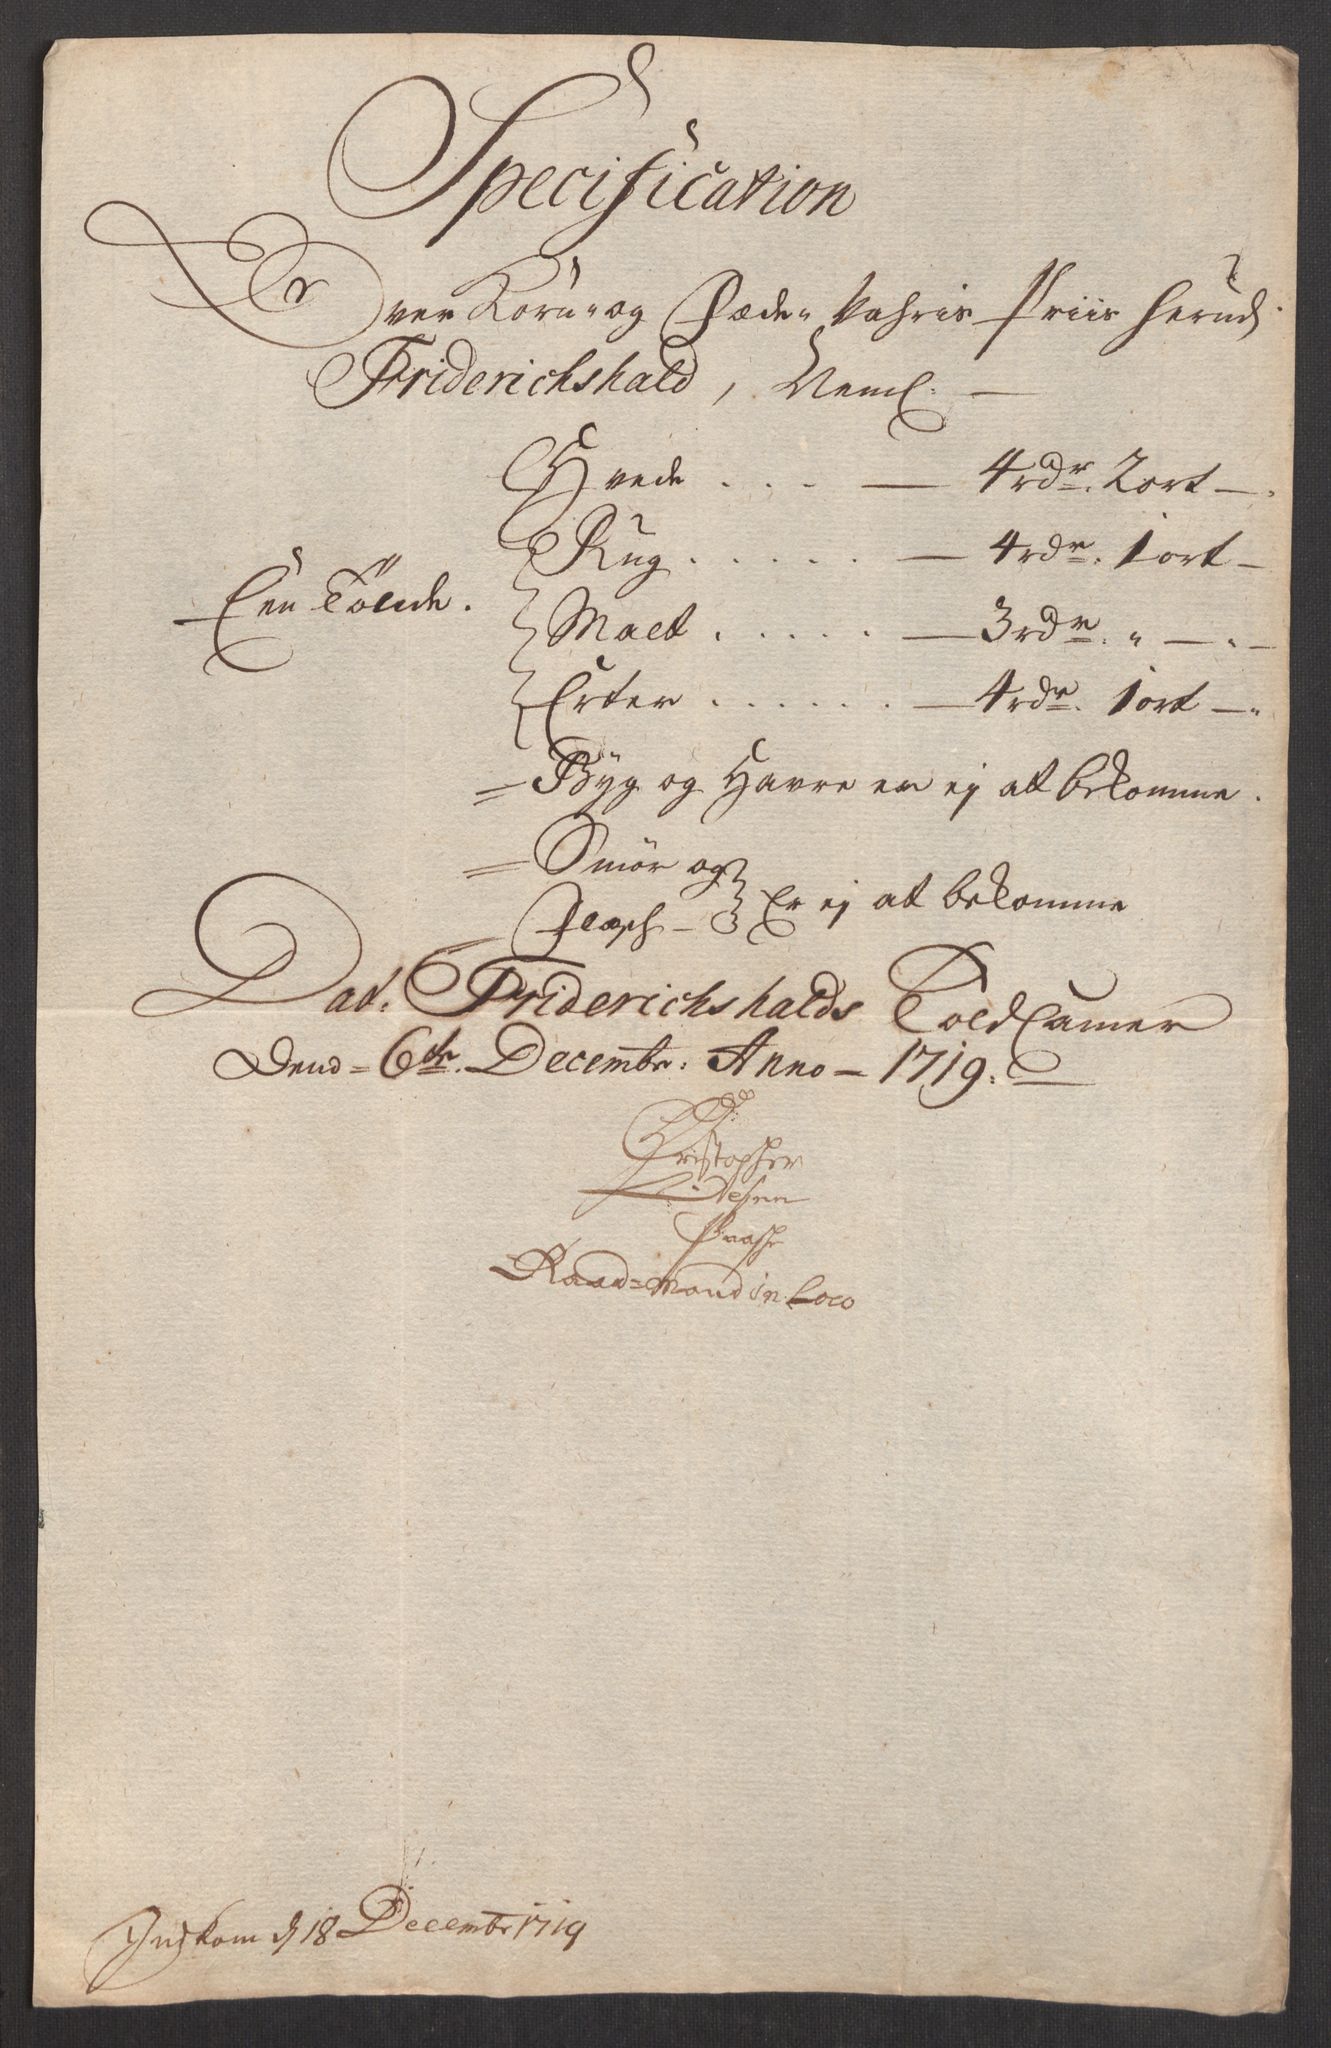 Specification
Over Korn- og Fæde Vahris Priis herud i
Friderichshald, Neml: —
Hvede . . . . — 4 rdr. 2 ort —
Rug . . . . . — 4 rdr. 1 ort —
Een Tönde.
Malt . . . . . — 3 rdr. " — " —
Erter . . . . . . — 4 rdr. 1 ort — "
= Byg og Havre er ej at bekomme.
= Smör og
Flesch — } Er ej at bekomme
Dat. Friderichshalds Told Camer
Dend = 6te. Decembr: Anno — 1719.
Christopher
Raad=Mand in Loco
Indkom d 18 Decembr 1719